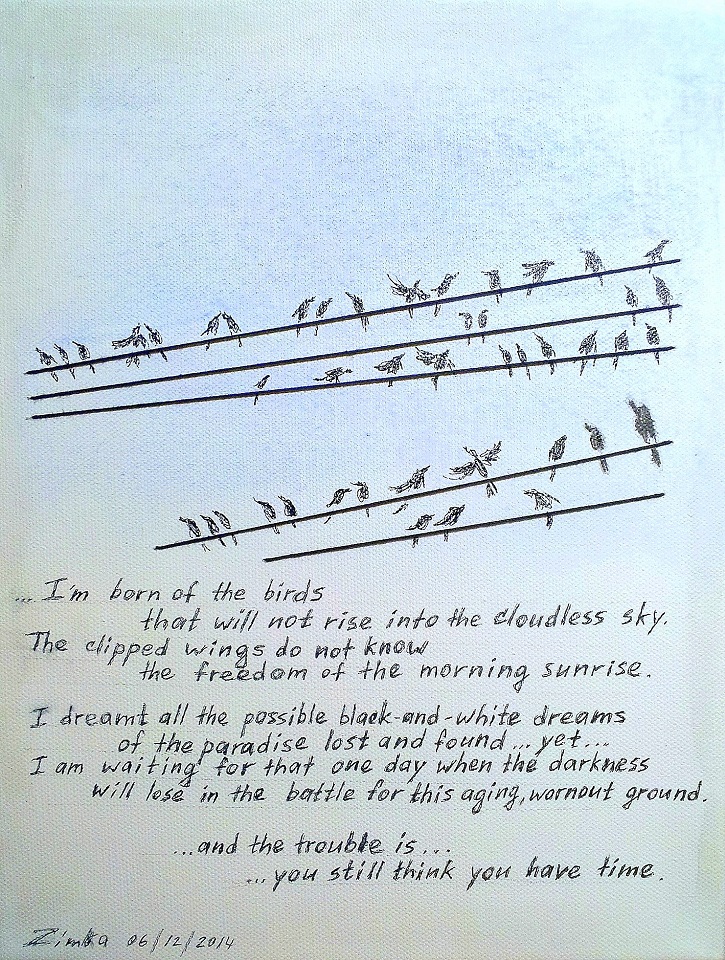 ... I'm born of the birds
that will not rise into the cloudless sky.
The clipped wings do not know
the freedom of the morning sunrise.
I dreamt all the possible black-and-white dreams
of the paradise lost and found... yet...
I am waiting for that one day when the darkness
will lose in the battle for this aging, wornout ground.
...and the trouble is...
...you still think you have time.
Zimka 06/12/2014